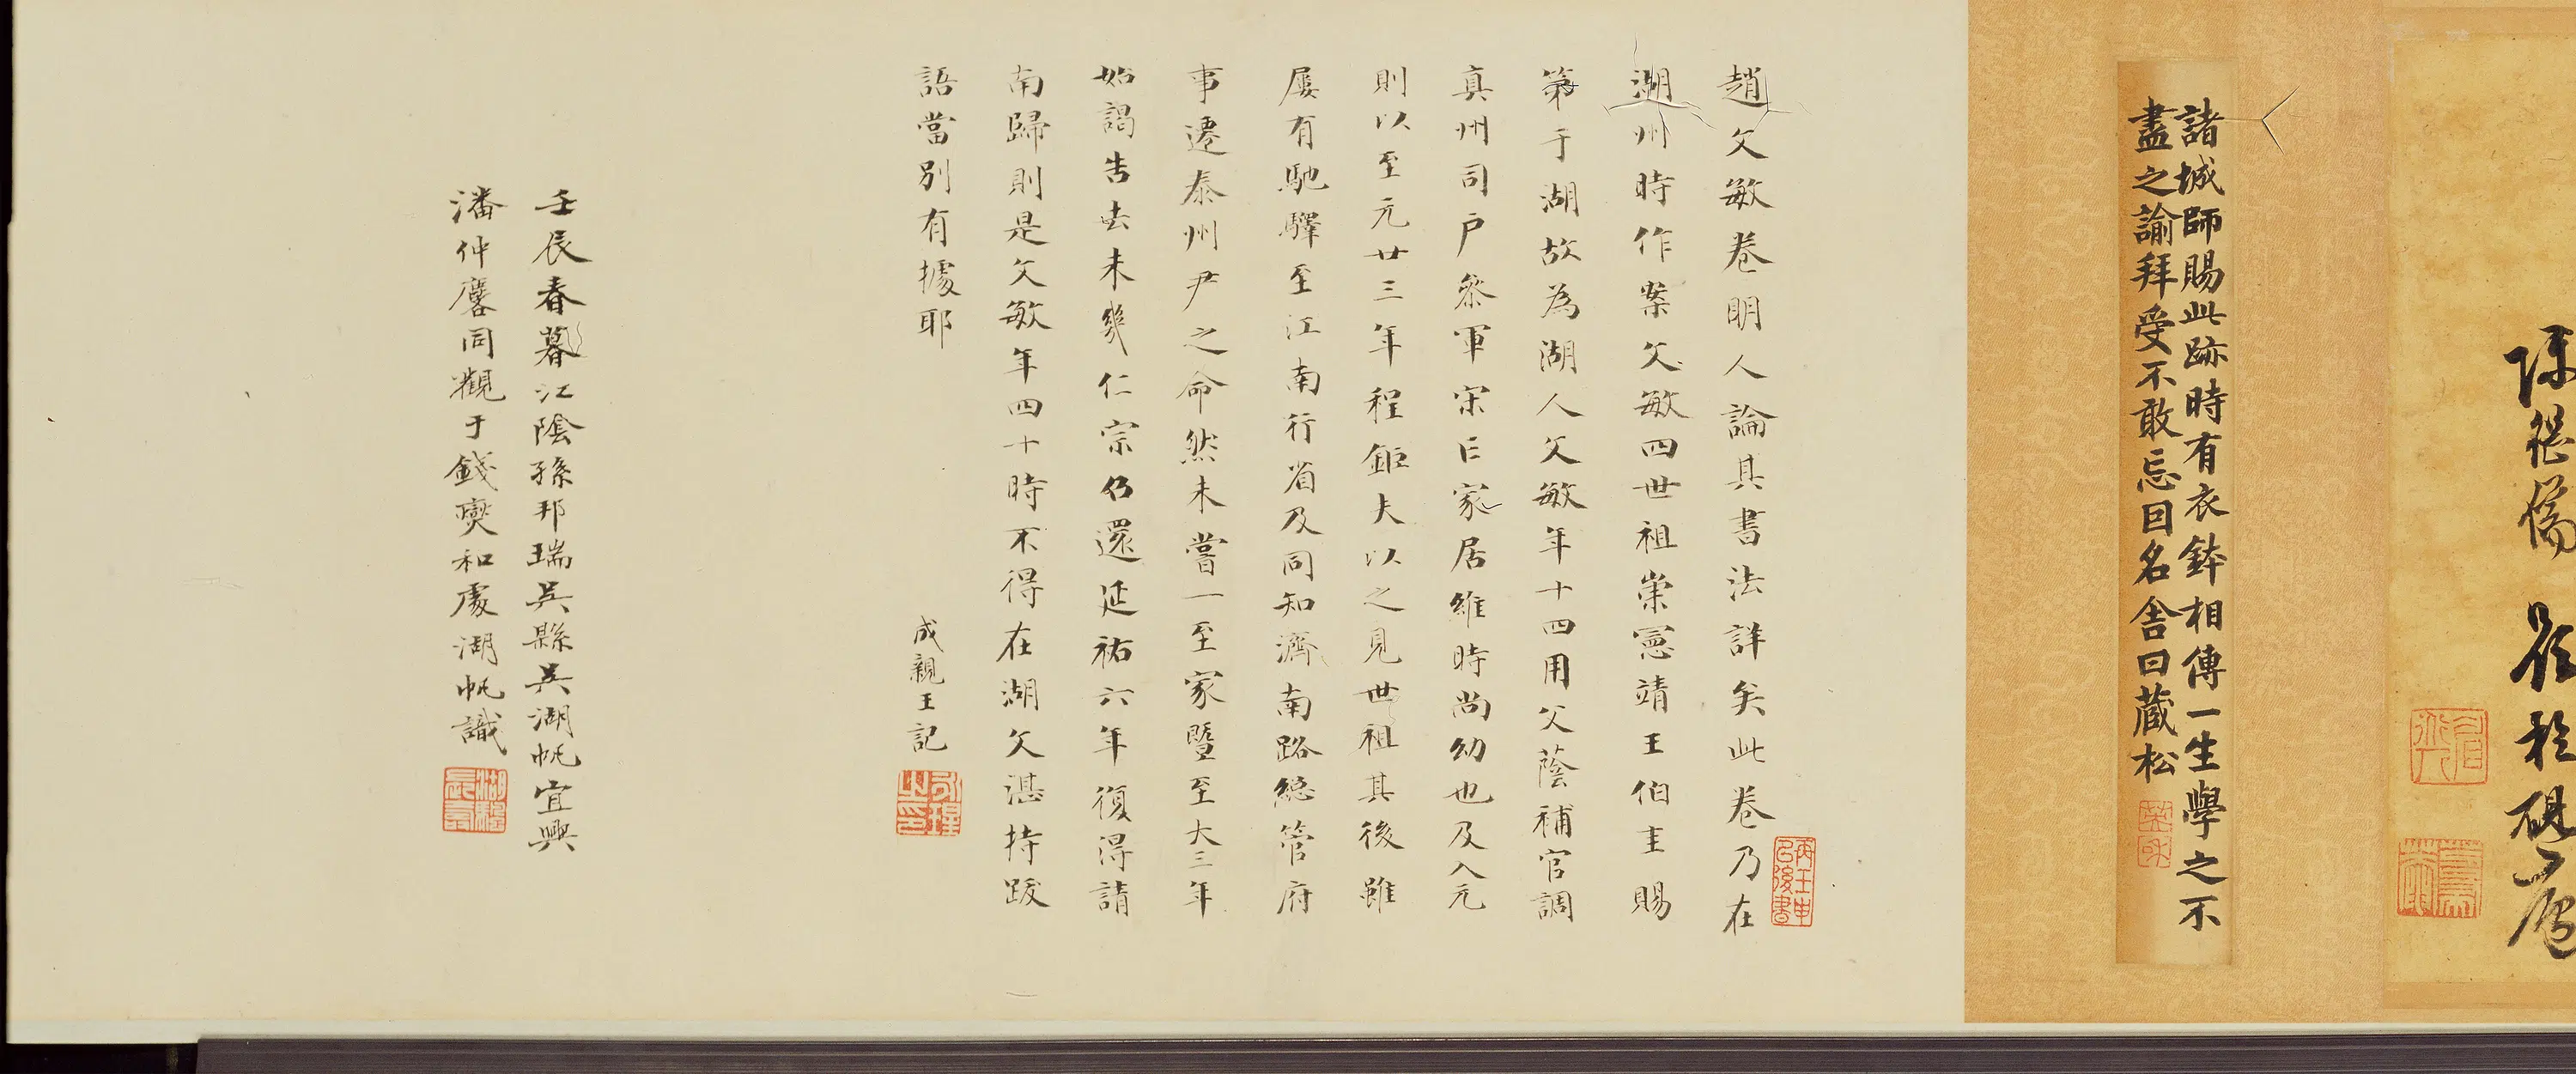 陳繼儒觀於硯廬
諸城師賜此跡時有衣鉢相傳一生學之不
盡之諭拜受不敢忘因名舍曰蔵松
趙文敏卷明人論其書法詳矣此卷乃在
湖州時作案文敏四世祖崇憲靖王伯圭賜
第于湖故為湖人文敏年十四用父蔭補官調
真州司戶參軍宋亡家居維時尚幼也及入元
則以至元廿三年程鉅夫以之見世祖其後雖
屢有馳驛至江南行省及同知濟南路總管府
事遷泰州尹之命然未嘗一至家暨至大三年
始謁告去未幾仁宗仍還延祐六年復得請
南歸則是文敏年四十時不得在湖文湛持跋
語當別有據耶
成親王記
永瑆之印
壬辰春暮江陰孫邦瑞吳縣吳湖帆宜興
潘仲麐同觀于錢奭和處湖帆識